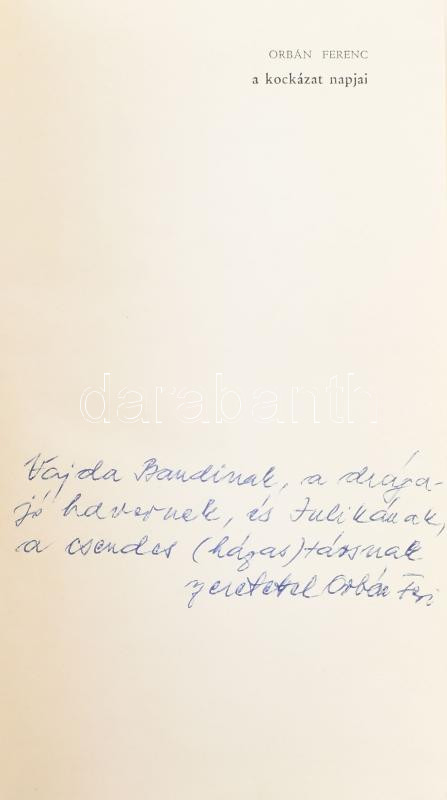 ORBÁN FERENC
a kockázat napjai
darabanth
Vajda Bandinak, a drága-
jó havernek, és Julikának,
a csendes (házas)társnak
szeretettel Orbán Feri